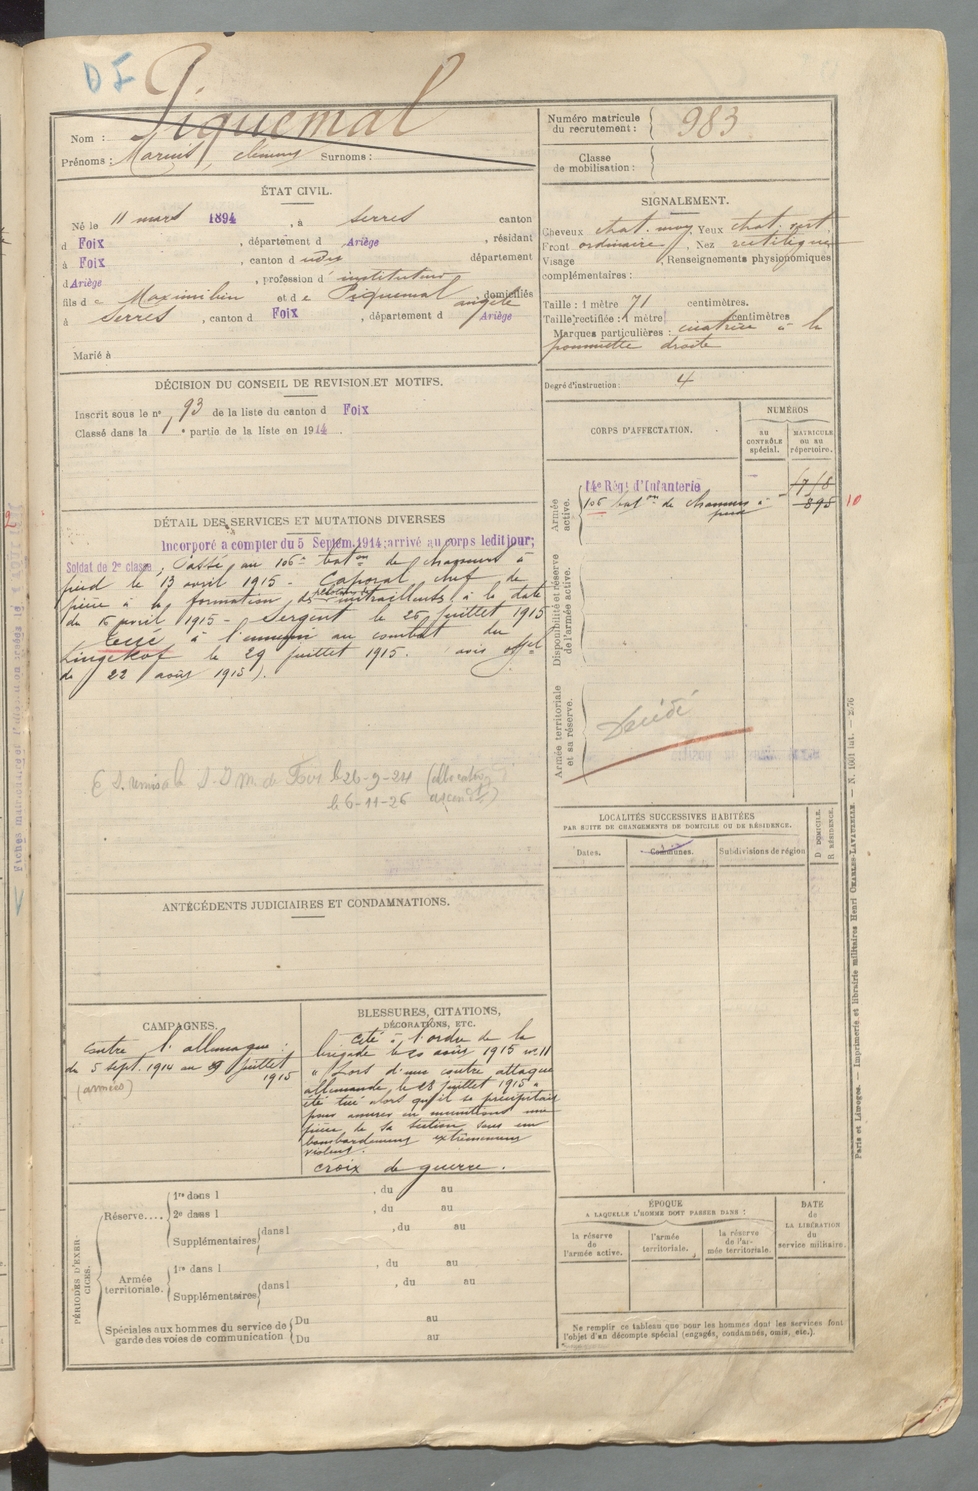 DF
Nom : Piquemal
Prénoms : Marius, Clément Surnoms :
Numéro matricule du recrutement : 983
Classe de mobilisation :
ÉTAT CIVIL.
Né le 11 mars 1894, à Serres canton
d Foix, département d Ariège, résidant
à Foix, canton d udit département
d Ariège, profession d'instituteur
fils de Maximilien et de Piquemal Angèle domiciliés
à Serres, canton d Foix, département d Ariège
Marié à
SIGNALEMENT.
Cheveux chat. moy, Yeux chat. vert.
Front ordinaire, Nez rectiligne
Visage , Renseignements physiognomiques
complémentaires :
Taille : 1 mètre 71 centimètres.
Taille rectifiée : 1 mètre centimètres
Marques particulières : cicatrice à la
pommette droite
Degré d'instruction : 4
DÉCISION DU CONSEIL DE REVISION ET MOTIFS.
Inscrit sous le n° 93 de la liste du canton d Foix
Classé dans la 1e partie de la liste en 1914.
CORPS D'AFFECTATION.
NUMÉROS
AU CONTRÔLE spécial.
MATRICULE ou au répertoire.
Armée active.
14e Régt d'Infanterie
106 baton de chasseurs à pied 895 10
Disponibilité et réserve de l'armée active.
Armée territoriale et sa réserve.
Décédé
DÉTAIL DES SERVICES ET MUTATIONS DIVERSES
Incorporé à compter du 5 Septem. 1914; arrivé au corps ledit jour;
Soldat de 2e classe; Passé au 106e baton de chasseurs à
pied le 13 avril 1915 - Caporal chef de
pièce à la formation des mitrailleurs à la date
du 16 avril 1915 - Sergent le 26 juillet 1915
Tué à l'ennemi au combat du
Lingekof le 29 juillet 1915. (avis offel
de 22 août 1915).
E. S. remis à la S-I M. de Foix le 26-9-24 (allocation
le 6-11-26 ascendts)
LOCALITÉS SUCCESSIVES HABITÉES
PAR SUITE DE CHANGEMENTS DE DOMICILE OU DE RÉSIDENCE.
Dates.
Communes.
Subdivisions de région
D. DOMICILE.
R. RÉSIDENCE.
ANTÉCÉDENTS JUDICIAIRES ET CONDAMNATIONS.
CAMPAGNES.
Contre l'Allemagne :
du 5 sept. 1914 au 29 juillet
1915
(armées)
BLESSURES, CITATIONS,
DÉCORATIONS, ETC.
Cité à l'ordre de la
brigade le 20 août 1915 n° 11
"Lors d'une contre attaque
allemande, le 28 juillet 1915 a
été tué alors qu'il se précipitait
pour assurer en munitions une
pièce de sa section sous un
bombardement extrêmement
violent.
croix de guerre.
PÉRIODES D'EXERCICES.
Réserve....
1re dans l , du au
2e dans l , du au
Supplémentaires dans l , du au
Armée territoriale.
1re dans l , du au
Supplémentaires dans l , du au
Spéciales aux hommes du service de garde des voies de communication
Du au
Du au
ÉPOQUE
A LAQUELLE L'HOMME DOIT PASSER DANS :
la réserve de l'armée active.
l'armée territoriale.
la réserve de l'armée territoriale.
DATE de LA LIBÉRATION du service militaire.
Ne remplir ce tableau que pour les hommes dont les services font
l'objet d'un décompte spécial (engagés, condamnés, omis, etc.).
Paris et Limoges. — Imprimerie et librairie militaires Henri CHARLES-LAVAUZELLE. — N. 1601 int. — 2/76